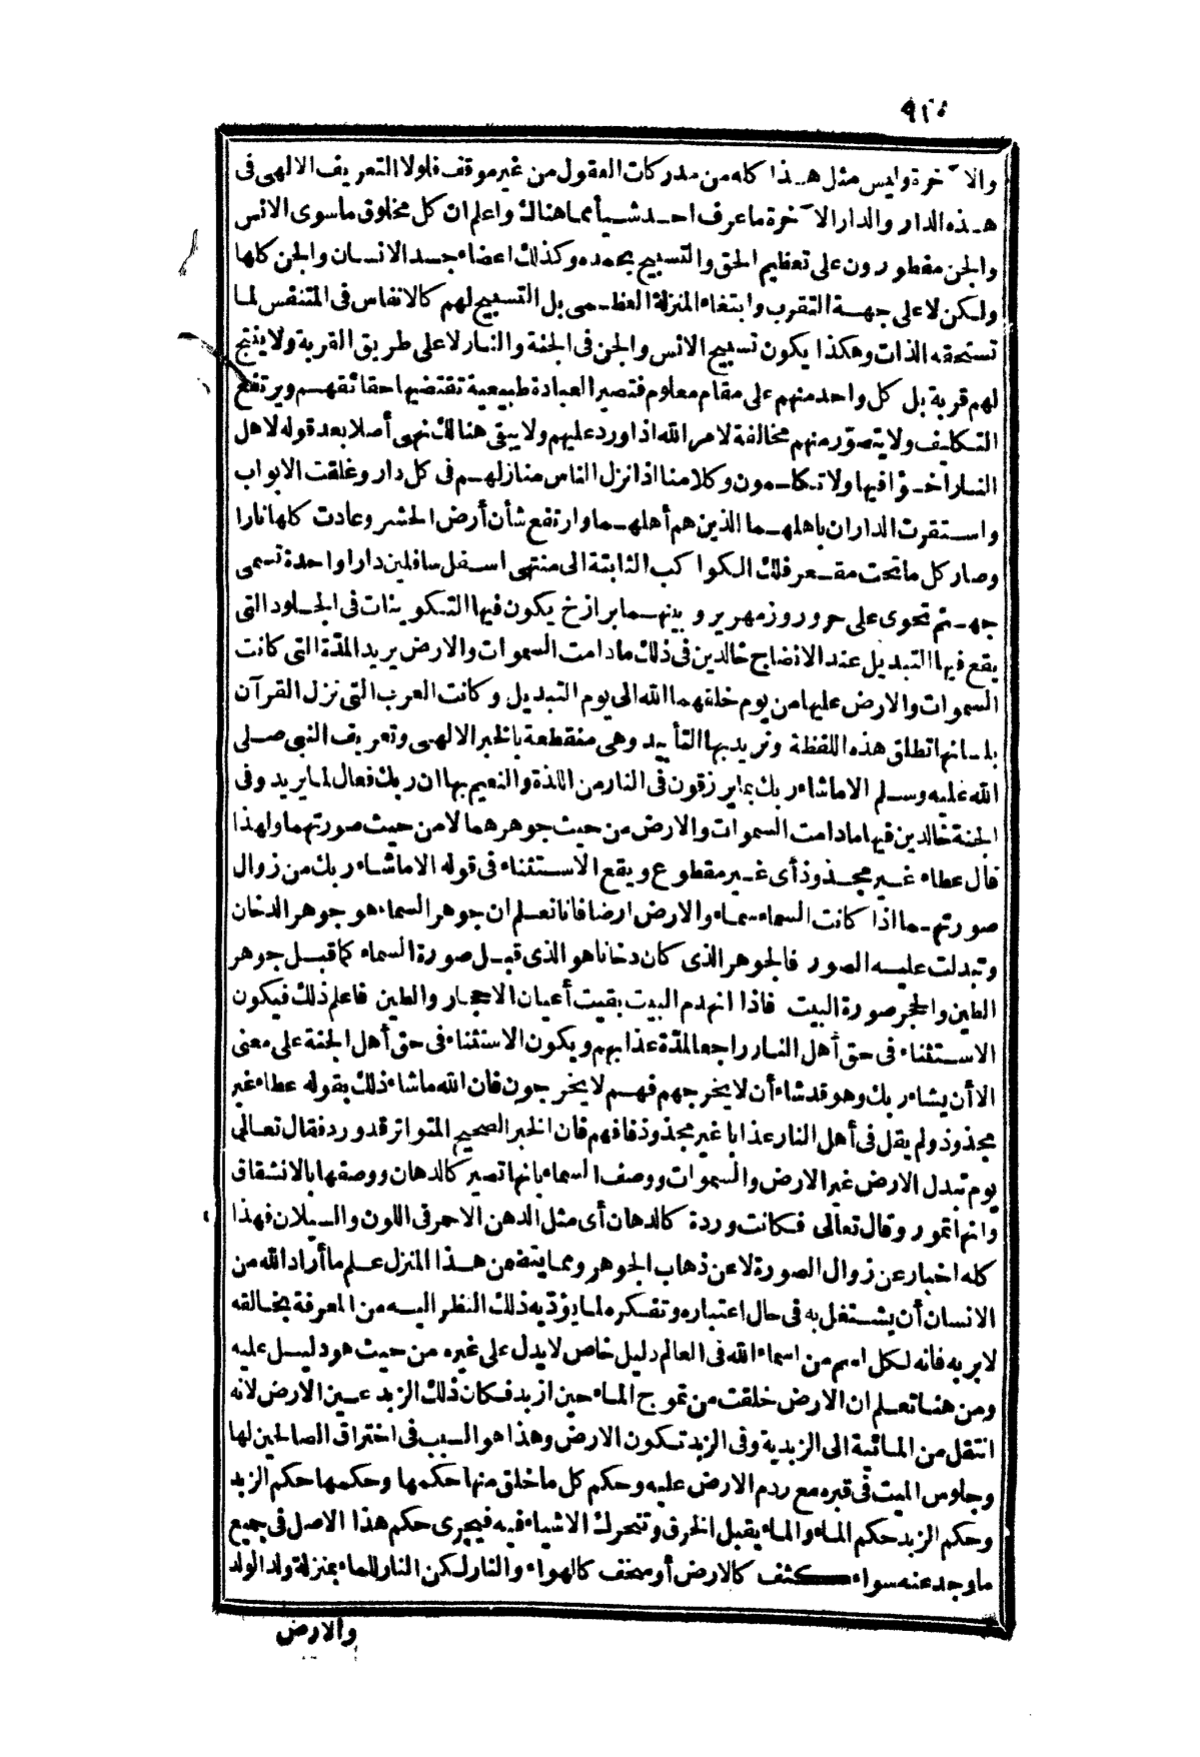 ٩٢٠
والآخرة وليس مثل هذا كله من مدركات العقول من غير موقف فلولا التعريف الالهى فى
هذه الدار والدار الآخرة ما عرف احد شيأ مما هنالك واعلم ان كل مخلوق ما سوى الانس
والجن مفطورون على تعظيم الحق والتسبيح بحمده وكذلك اعضاء جسد الانسان والجن كلها
ولكن لا على جهة التقرب وابتغاء المنزلة العظمى بل التسبيح لهم كالانفاس فى المتنفس لما
تستحقه الذات وهكذا يكون تسبيح الانس والجن فى الجنة والنار لا على طريق القربة ولا ينتج
لهم قربة بل كل واحد منهم على مقام معلوم فتصير العبادة طبيعية تقتضيها حقائقهم ويرتفع
التكليف ولا يتصوّر منهم مخالفة لامر الله اذا ورد عليهم ولا يبقى هنالك نهى أصلا بعد قوله لاهل
النار اخسؤا فيها ولا تكلمون وكلامنا اذا نزل الناس منازلهم فى كل دار وغلقت الابواب
واستقرت الداران باهلهما الذين هم أهلهما وارتفع شأن أرض الحشر وعادت كلها نارا
وصار كل ما تحت مقعر فلك الكواكب الثابتة الى منتهى اسفل سافلين دارا واحدة تسمى
جهنم تحوى على حرور وزمهرير وبينهما برازخ يكون فيها التكوينات فى الجلود التى
يقع فيها التبديل عند الانضاج خالدين فى ذلك ما دامت السموات والارض يريد المدّة التى كانت
السموات والارض عليها من يوم خلقهما الله الى يوم التبديل وكانت العرب التى نزل القرآن
بلسانها تطلق هذه اللفظة وتريد بها التأبيد وهى منقطعة بالخبر الالهى وتعريف النبى صلى
الله عليه وسلم الا ما شاء ربك بما يرزقون فى النار من اللذة والنعيم بها ان ربك فعال لما يريد وفى
الجنة خالدين فيها ما دامت السموات والارض من حيث جوهرهما لا من حيث صورتهما ولهذا
قال عطاء غير مجذوذ أى غير مقطوع ويقع الاستثناء فى قوله الا ما شاء ربك من زوال
صورتهما اذا كانت السماء سماء والارض ارضا فانا نعلم ان جوهر السماء هو جوهر الدخان
وتبدلت عليه الصور فالجوهر الذى كان دخانا هو الذى قبل صورة السماء كما قبل جوهر
الطين والحجر صورة البيت فاذا انهدم البيت بقيت أعيان الاحجار والطين فاعلم ذلك فيكون
الاستثناء فى حق أهل النار راجعا لمدّة عذابهم ويكون الاستثناء فى حق أهل الجنة على معنى
الا أن يشاء ربك وهو قد شاء أن لا يخرجهم فهم لا يخرجون فان الله ما شاء ذلك بقوله عطاء غير
مجذوذ ولم يقل فى أهل النار عذابا غير مجذوذ فافهم فان الخبر الصحيح المتواتر قد ورد فقال تعالى
يوم تبدل الارض غير الارض والسموات ووصف السماء بانها تصير كالدهان ووصفها بالانشقاق
وانها تمور وقال تعالى فكانت وردة كالدهان أى مثل الدهن الاحمر فى اللون والسيلان فهذا
كله اخبار عن زوال الصورة لا عن ذهاب الجوهر ومما ينتج من هذا المنزل علم ما أراد الله من
الانسان أن يشتغل به فى حال اعتباره وتفكره لما يؤدّيه ذلك النظر اليه من المعرفة بخالقه
لا بربه فانه لكل اسم من اسماء الله فى العالم دليل خاص لا يدل على غيره من حيث هو دليل عليه
ومن هنا تعلم ان الارض خلقت من تموج الماء حين ازبد فكان ذلك الزبد عين الارض لانه
انتقل من المائية الى الزبدية وفى الزبد تكون الارض وهذا هو السبب فى اختراق الصالحين لها
وجلوس الميت فى قبره مع ردم الارض عليه وحكم كل ما خلق منها حكمها وحكمها حكم الزبد
وحكم الزبد حكم الماء والماء يقبل الخرق وتتحرك الاشياء فيه فيجرى حكم هذا الاصل فى جميع
ما وجد عنه سواء كثف كالارض أو سخف كالهواء والنار لكن النار للماء بمنزلة ولد الولد
والارض